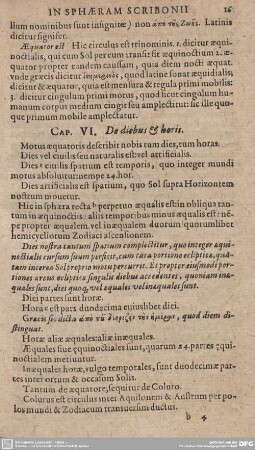 IN SPHÆRAM SCRIBONII 16
llum nominibus sunt insignitæ) non ἀπὸ τῆς ζωῆς. Latinis
dicitur signifer.
Æquator est Hic circulus est trinominis. 1. dicitur æqui-
noctialis, qui cum Sol per eum transit sit æquinoctium 2. æ-
quator propter eandem causam, quia diem nocti æquat.
vnde græcis dicitur ἰσημερινὸς, quod lacine sonat æquidialis,
& dicitur æquator, quia est mensura & regula primi mobilis
3. dicitur cingulum primi motus, quod sicut cingulum hu-
manum corpus medium cingit seu amplectitur: sic ille quo-
que primum mobile amplectatur.
CAP. VI. De diebus & horis.
Motus æquatoris describit nobis tum dies, tum horas.
Dies vel ciuilis seu naturalis est vel artificialis.
Dies ciuilis spatium est temporis, quo integer mundi
motus absoluitur: nempe 24. hor.
Dies artificialis est spatium, quo Sol supra Horizontem
nostrum mouetur.
Hic in sphæra recta perpetuo æqualis est in obliqua tan-
tum in æquinoctiis: aliis temporibus minus æqualis est: ne-
pe propter æqualem vel inæqualem duorum quotumlibet
hemicycliorum Zodiaci ascensionem.
Dies nostra tantum spatium complectitur, quo integer æqui-
noctialis cursum suum perficit, cum tanta portione ecliptica, quã-
tum interea Sol proprio motu percurrit. Et propter eiusmodi por-
tiones arcus ecliptica singulis diebus accedentes, quoniam inæ-
quales sunt, dies quoq, vel æquales vel inæquales sunt.
Diei partes sunt horæ.
Hora est pars duodecima cuiuslibet diei.
Græcis sic dicta ἀπὸ τοῦ ὁρίζειν τὴν ἡμέραν, quod diem di-
stinguat.
Horæ aliæ æquales: aliæ inæquales.
Æquales sue equinoctiales sunt, quarum 24. partes equi-
noctialem metiuntur.
Inæquales horæ, vulgo temporales, sunt duodecimæ par-
tes inter ortum & occasum Solis.
Tantum de æquatore, sequitur de Coluro.
Colurus est circulus inter Aquilonem & Austrum per po-
los mundi & Zodiacum transuersim ductus.
b 4